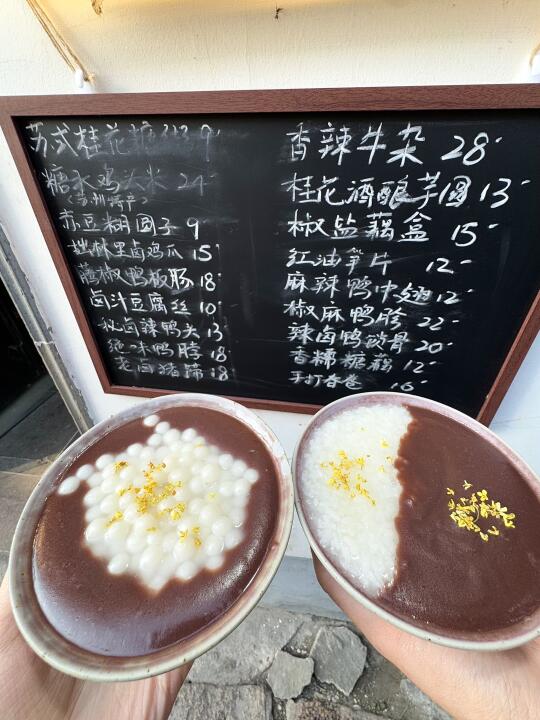 苏式桂花糖粥 9
糖水鸡头米 24
(苏州特产)
赤豆糊圆子 9
卤鸡爪 15
藤椒鸭板肠 18
卤汁豆腐丝 10
卤辣鸭头 13
绝味鸭脖 18
老卤猪蹄 18
香辣牛杂 28
桂花酒酿芋圆 13
椒盐藕盒 15
红油笋片 12
麻辣鸭中翅 12
椒麻鸭胗 22
辣卤鸭锁骨 20
香糯糖藕 12
手打春卷 16